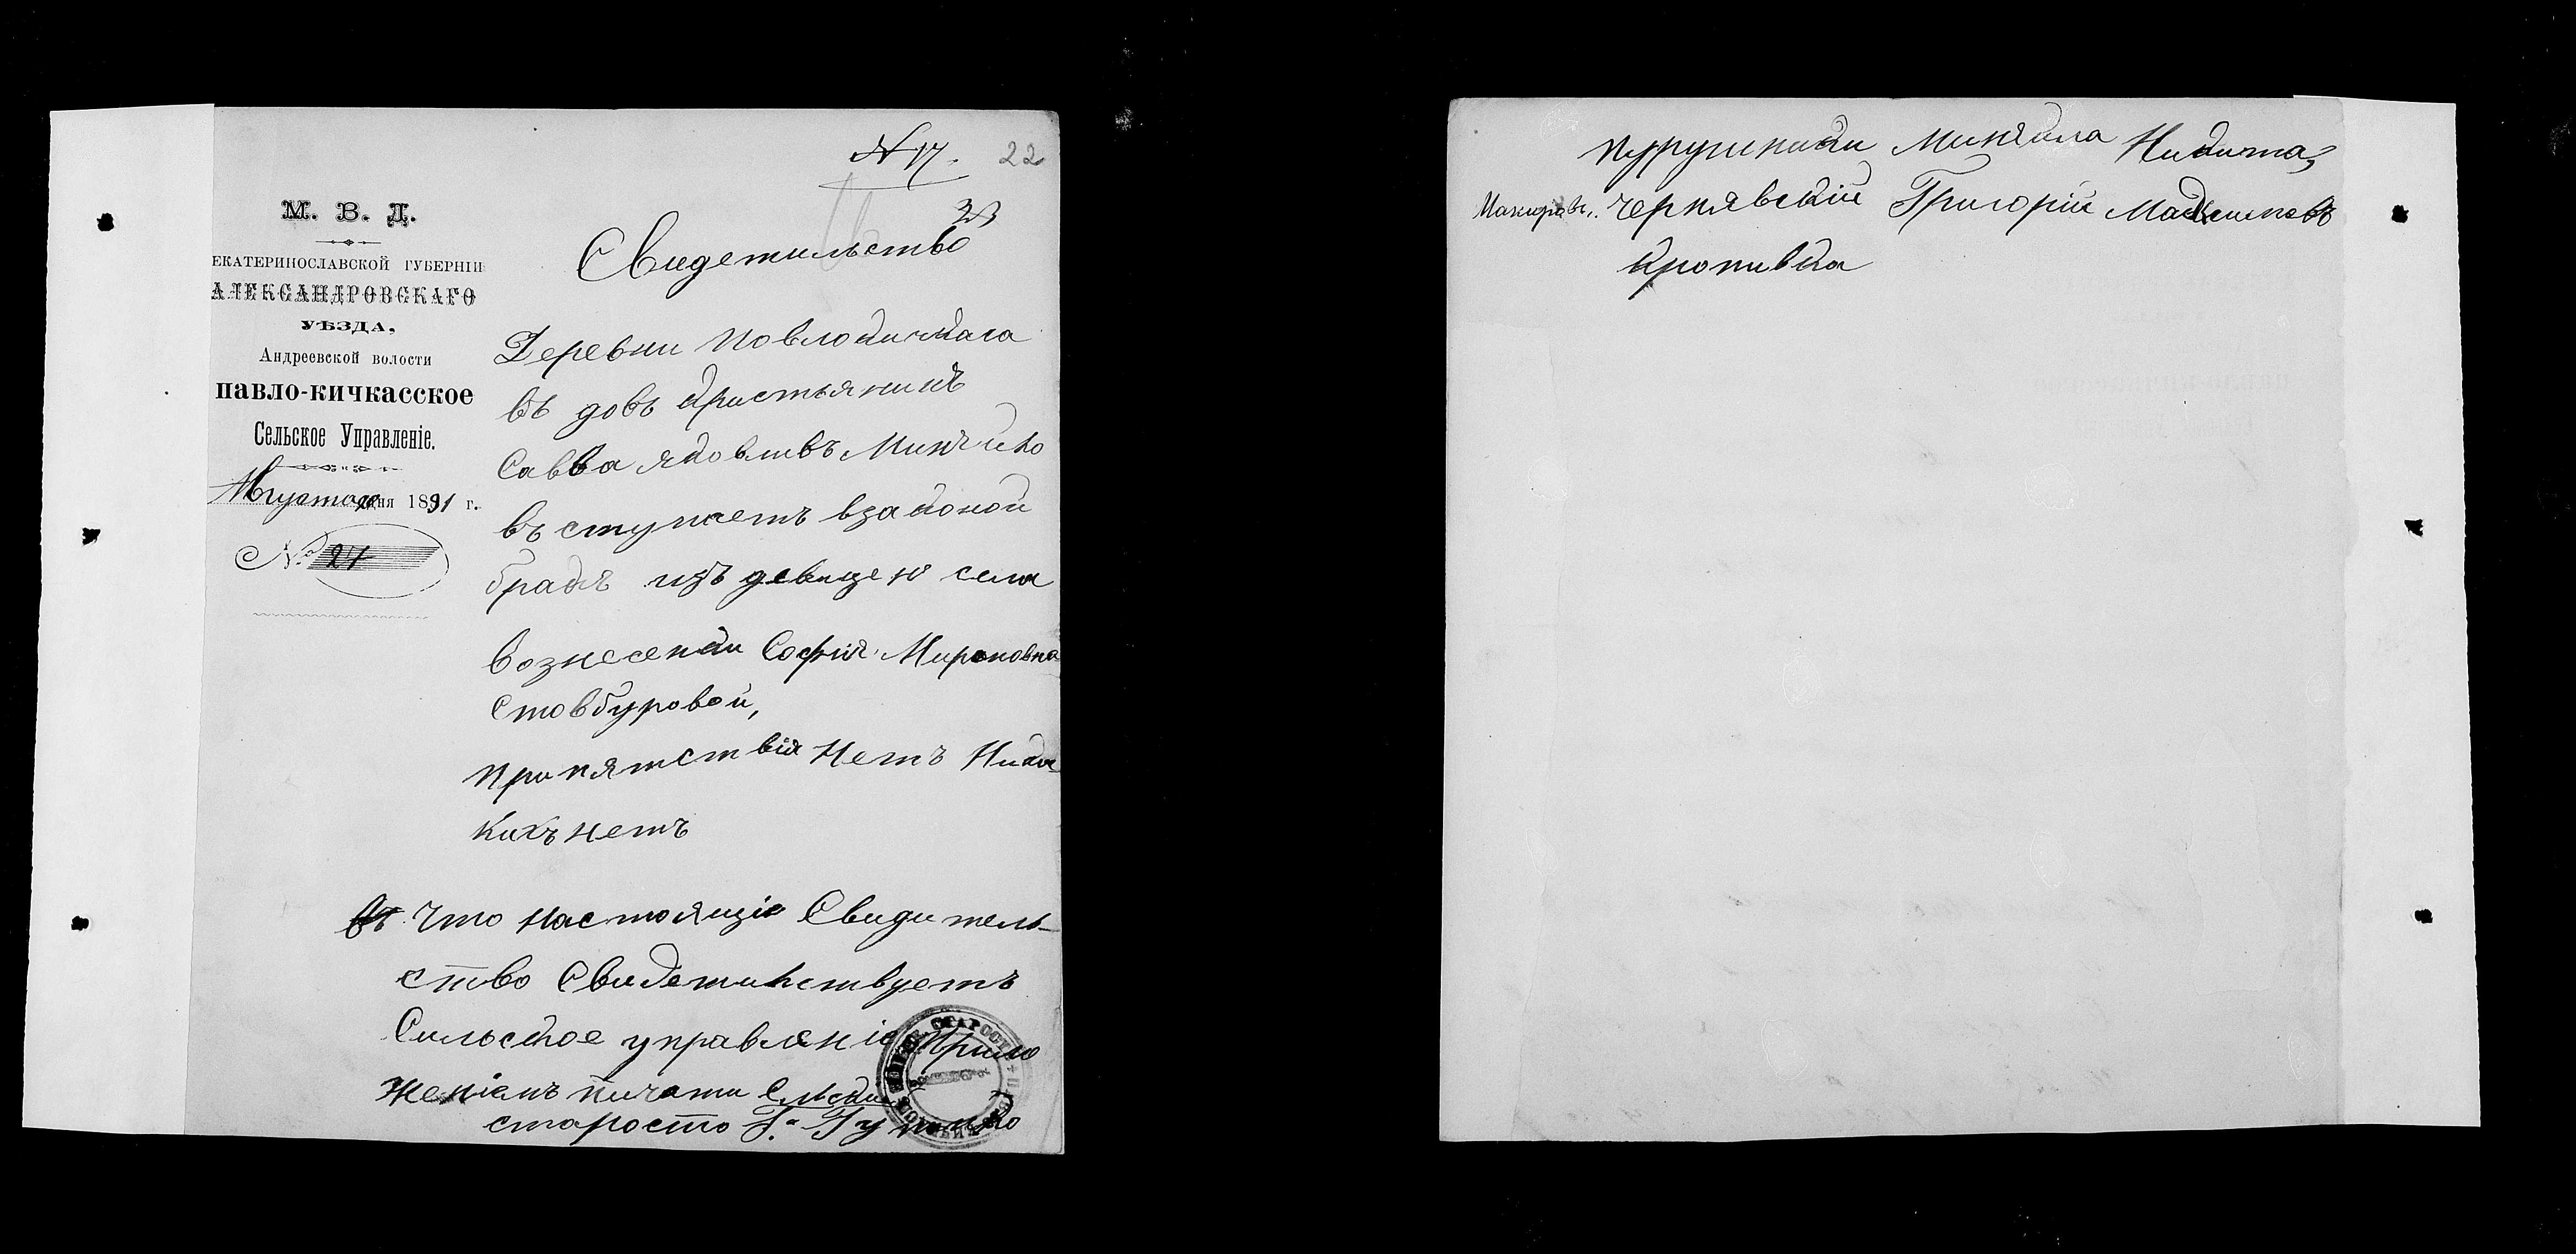 N 17. 22
23
М. В. Д.
ЕКАТЕРИНОСЛАВСКОЙ ГУБЕРНІИ
АЛЕКСАНДРОВСКАГО
УѢЗДА,
Андреевской волости
ПАВЛО-КИЧКАССКОЕ
Сельское Управленіе.
Августа дня 1891 г.
№ 21
Свидетильство
Деревни Повлокичкаса
въ довъ Кристьянинъ
Савва Яковливъ
въ ступаетъ взаконой
бракъ изъ девицею села
вознесенки Софія Мироновна
Стовбуровой,
припятствія НетъНика
кихъ нетъ
въ Что настоящіе Свидитель-
ство Свидетильствуетъ
Сильское управленіе Прило
женіемъ пичати
старосто Г.
Михаила Никита,
чернявскій Григорій Максимовъ
Кропивка